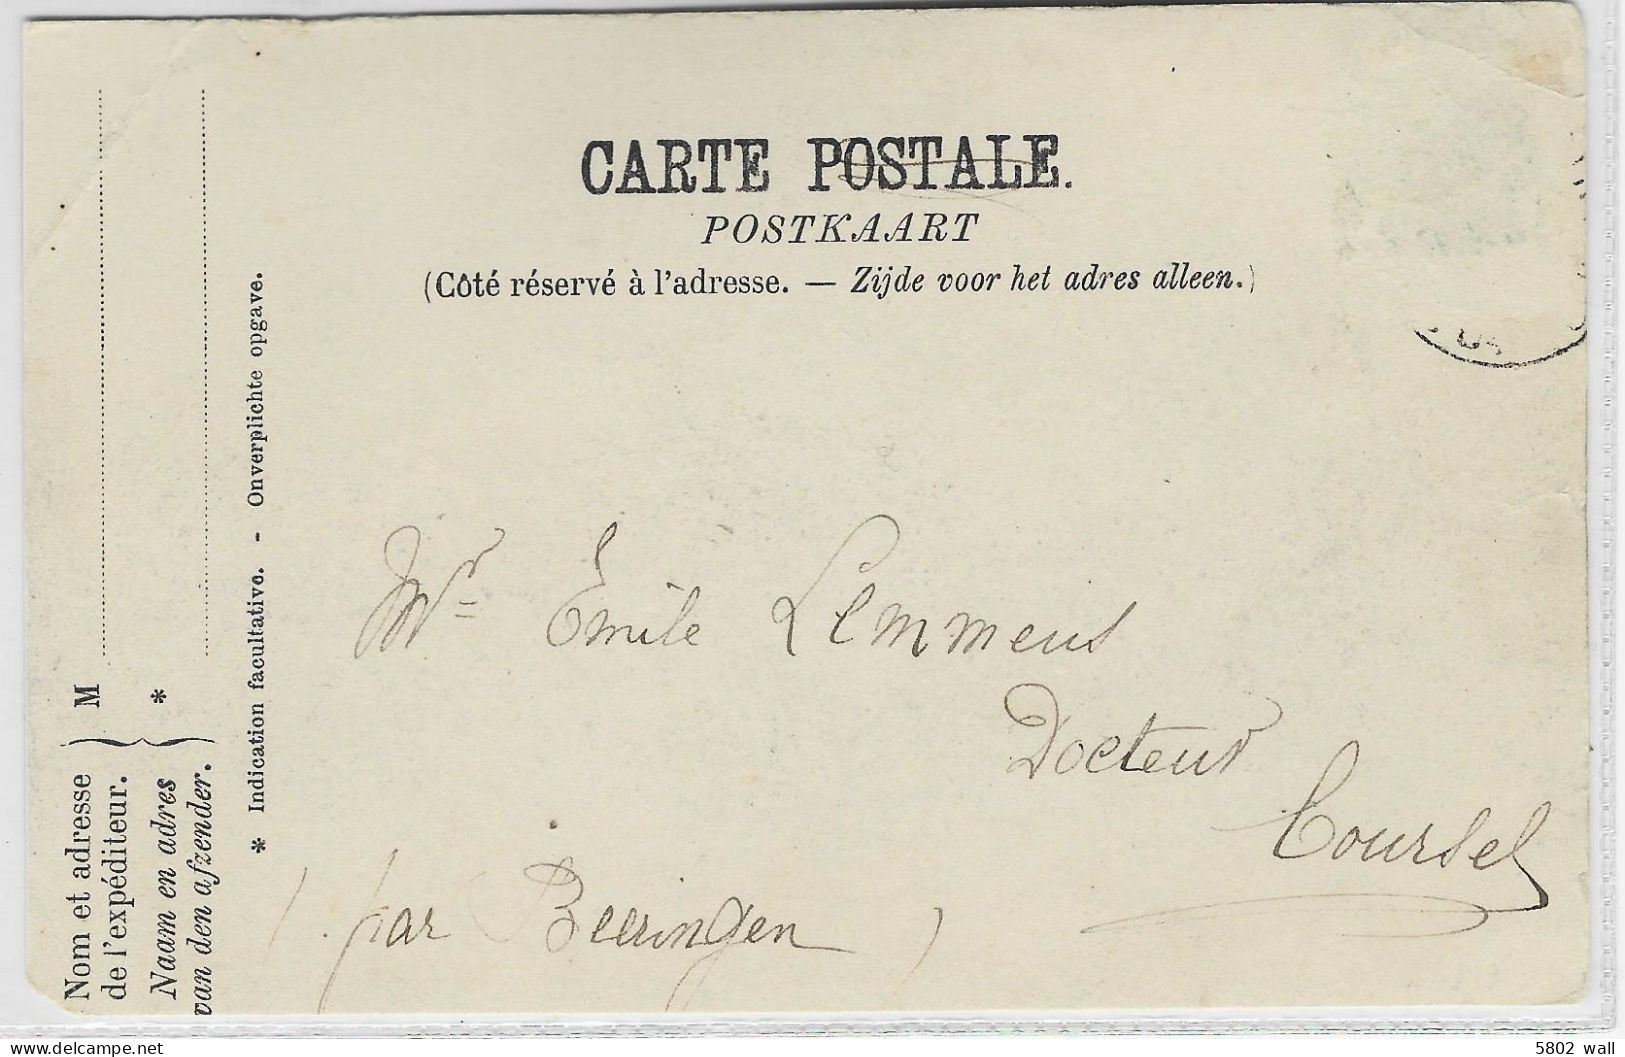 CARTE POSTALE.
POSTKAART
(Côté réservé à l'adresse. — Zijde voor het adres alleen.)
Mr Emile Lemmens
Docteur
Coursel
(par Beeringen)
Nom et adresse
de l'expéditeur.
Naam en adres
van den afzender.
M
*
* Indication facultative. - Onverplichte opgave.
delcampe.net
5802 wall